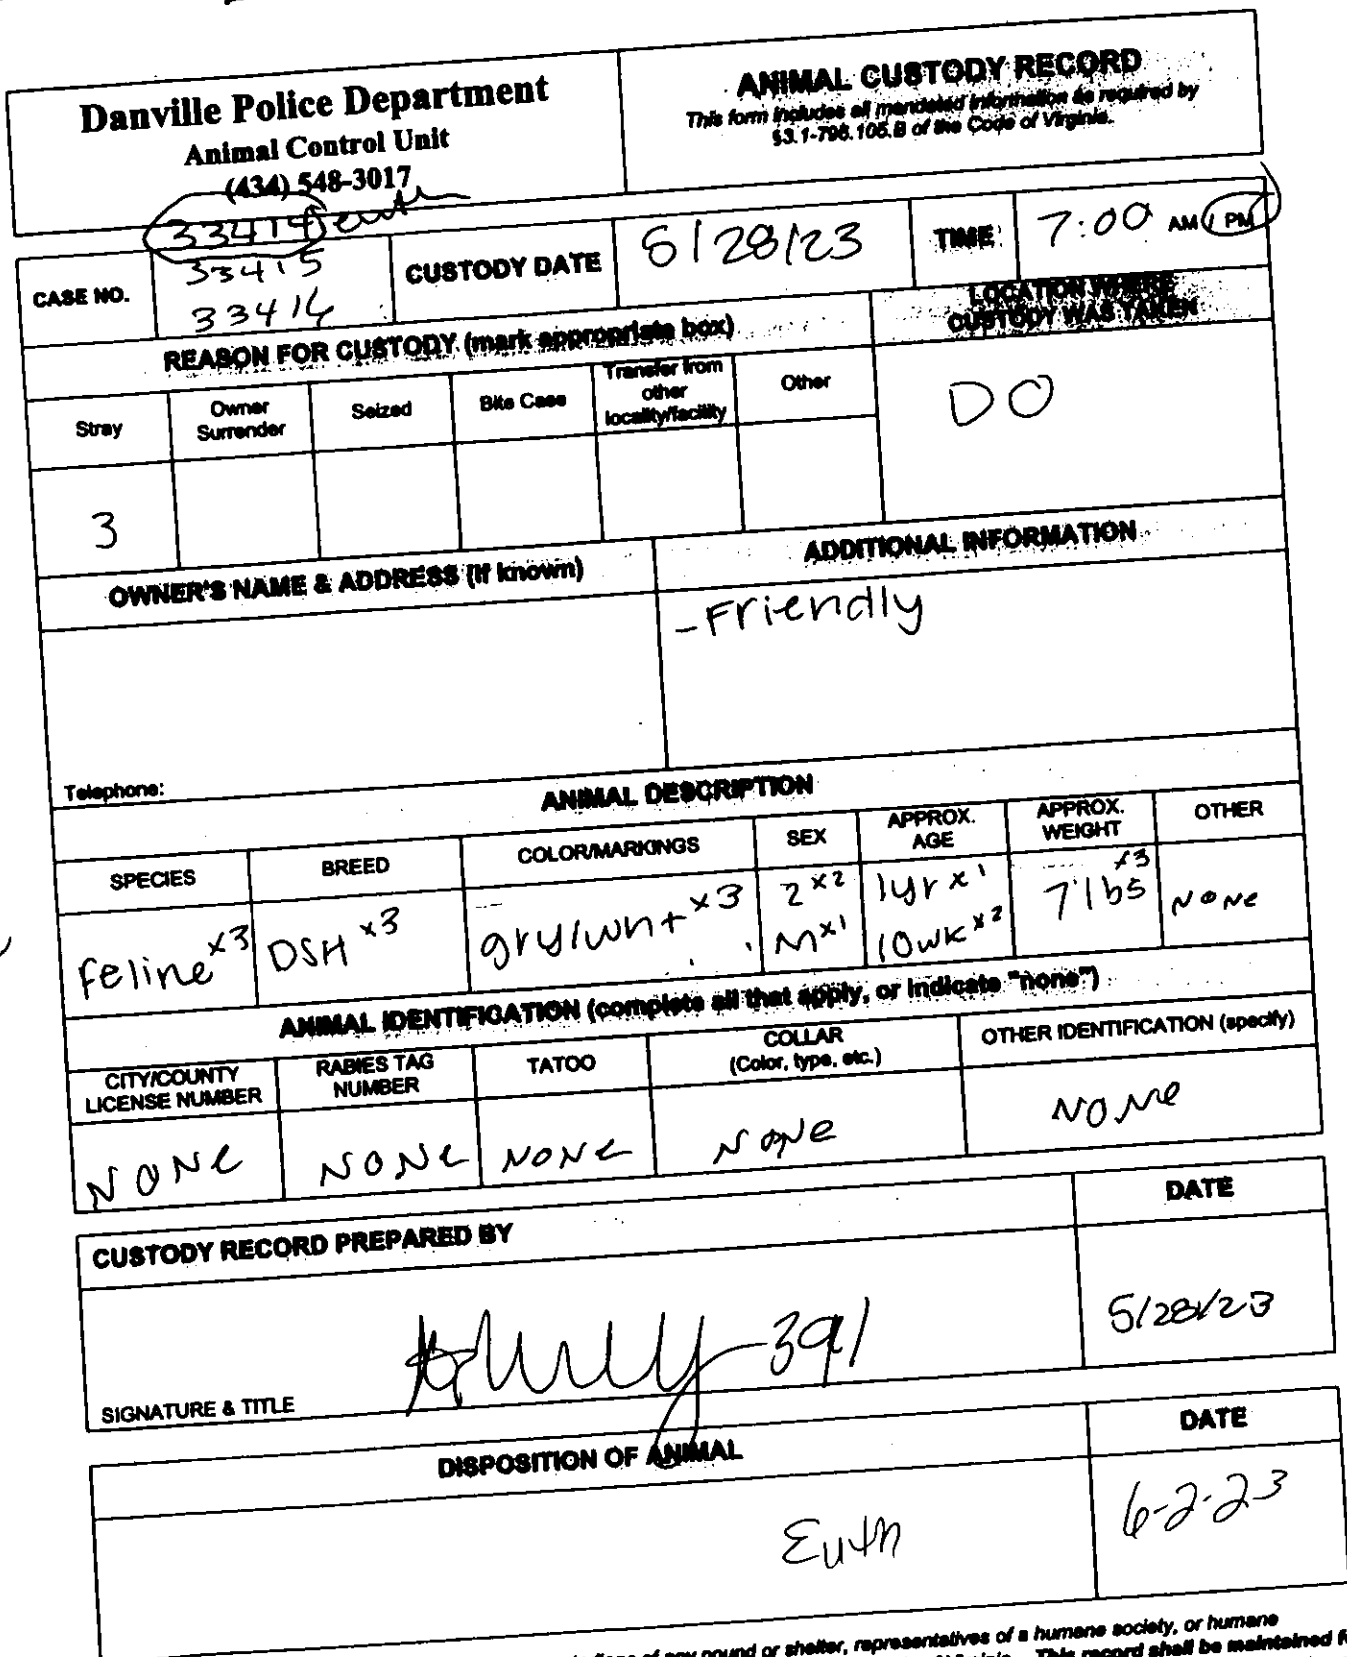 Danville Police Department
Animal Control Unit
(434) 548-3017
ANIMAL CUSTODY RECORD
This form includes all mandated information as required by
§3.1-796.105.B of the Code of Virginia.
CASE NO.
33414 euth
33415
33416
CUSTODY DATE
5/28/23
TIME
7:00 AM / PM
REASON FOR CUSTODY (mark appropriate box)
LOCATION WHERE
CUSTODY WAS TAKEN
Stray
Owner
Surrender
Seized
Bite Case
Transfer from
other
locality/facility
Other
DO
3
OWNER'S NAME & ADDRESS (if known)
ADDITIONAL INFORMATION
-Friendly
Telephone:
ANIMAL DESCRIPTION
SPECIES
BREED
COLOR/MARKINGS
SEX
APPROX.
AGE
APPROX.
WEIGHT
OTHER
feline x3
DSH x3
gry/wht x3
2 x2
M x1
1yr x1
10wk x2
7lbs x3
NONe
ANIMAL IDENTIFICATION (complete all that apply, or indicate "none")
CITY/COUNTY
LICENSE NUMBER
RABIES TAG
NUMBER
TATOO
COLLAR
(Color, type, etc.)
OTHER IDENTIFICATION (specify)
NONe
NONe
NONe
NONe
NONe
CUSTODY RECORD PREPARED BY
DATE
391
5/28/23
SIGNATURE & TITLE
DISPOSITION OF ANIMAL
DATE
Euth
6-2-23
of any pound or shelter, representatives of a humane society, or humane
This record shall be maintained